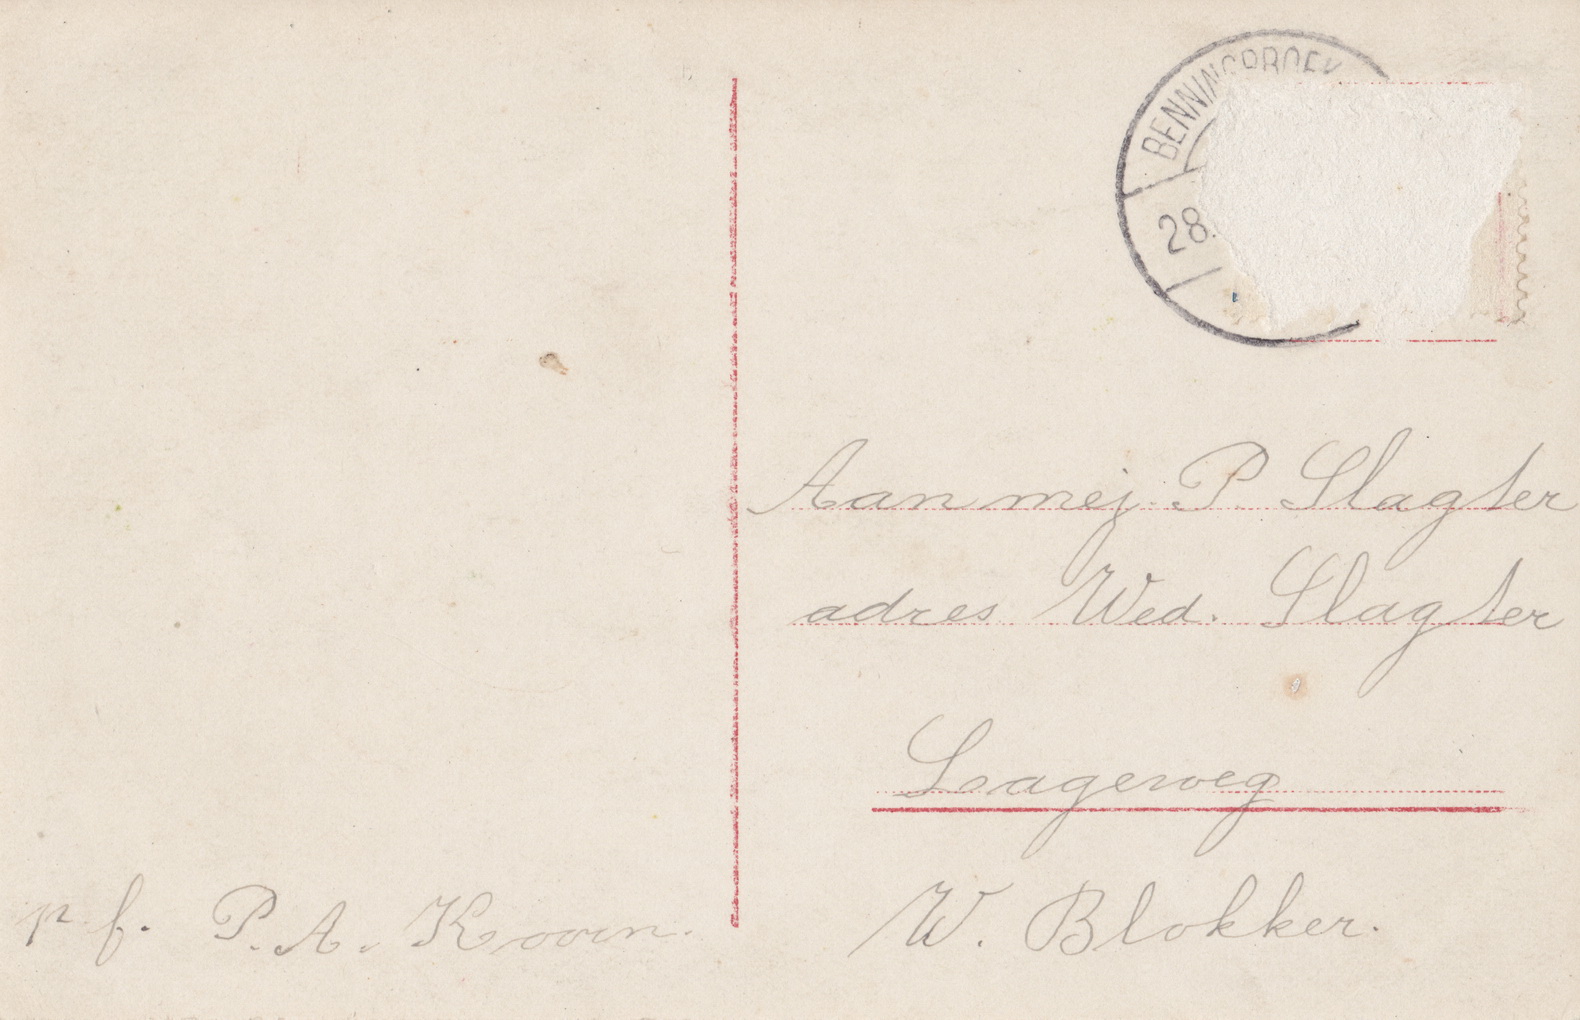 BENNINGBROEK
28.
Aan mej. P. Slagter
adres Wed. Slagter
Lageweg
W. Blokker.
p f. P. A. Kooin.